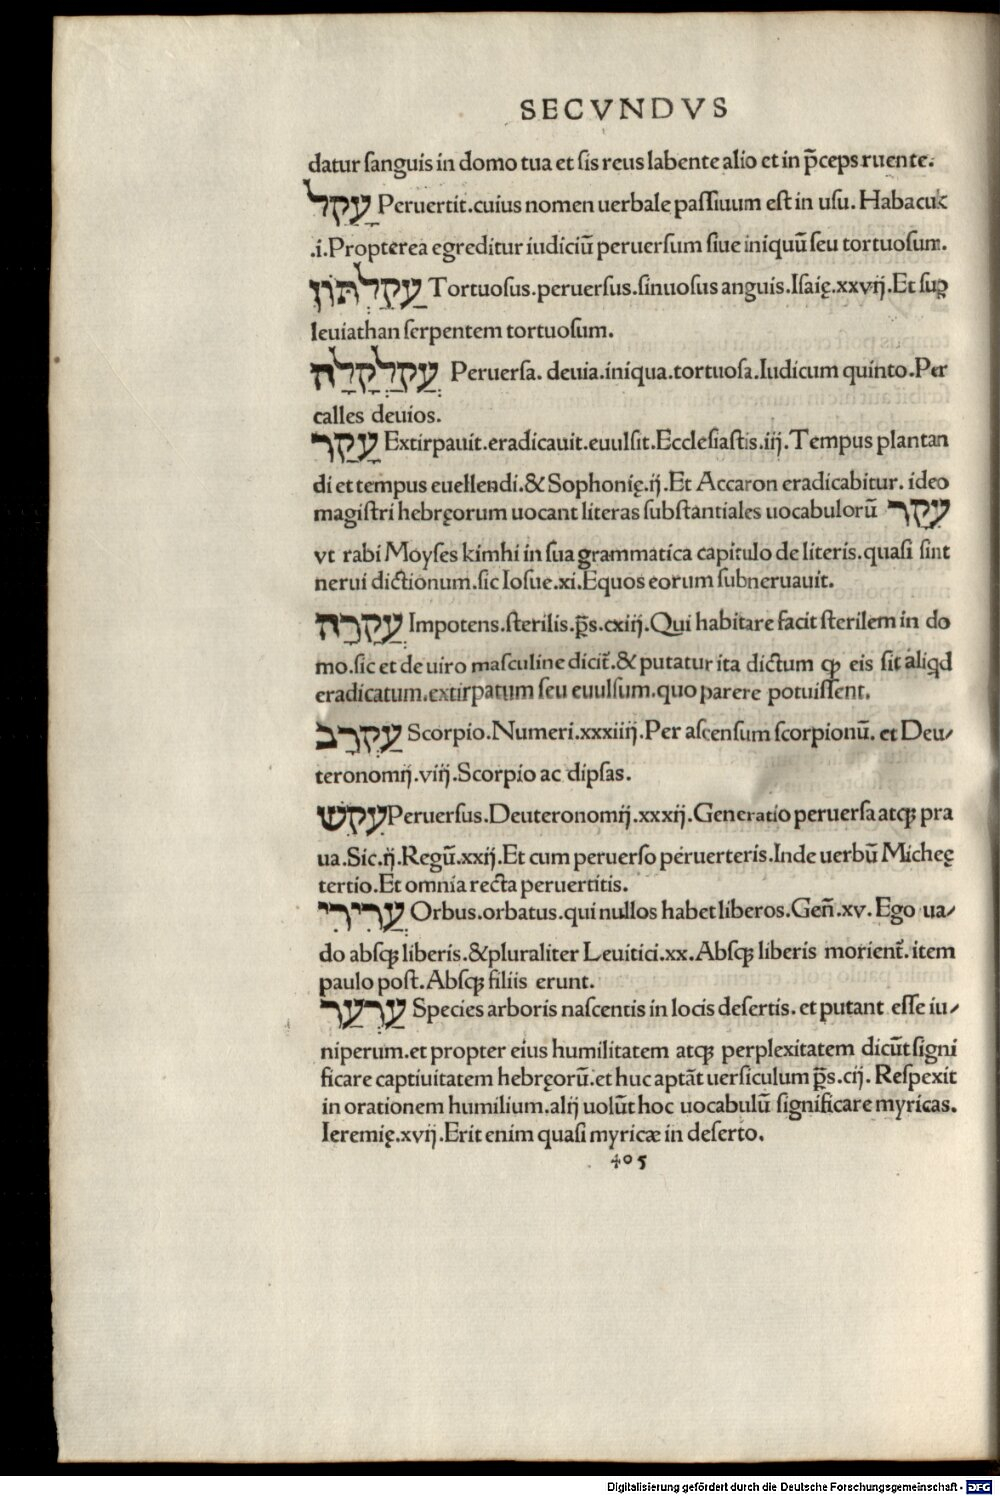 SECVNDVS
datur ſanguis in domo tua et ſis reus labente alio et in p̄ceps ruente.
עָקַל Peruertit.cuius nomen uerbale paſſiuum eſt in uſu. Habacuk
.i.Propterea egreditur iudiciū peruerſum ſiue iniquū ſeu tortuoſum.
עֲקַלָּתוֹן Tortuoſus.peruerſus.ſinuoſus anguis.Iſaię.xxvij.Et ſuꝑ
leuiathan ſerpentem tortuoſum.
עֲקַלְקָלָה Peruerſa. deuia.iniqua.tortuoſa.Iudicum quinto.Per
calles deuios.
עָקַר Extirpauit.eradicauit.euulſit.Eccleſiaſtis.iij.Tempus plantan
di et tempus euellendi.& Sophonię.ij.Et Accaron eradicabitur. ideo
magiſtri hebręorum uocant literas ſubſtantiales uocabulorū עִקָר
vt rabi Moyſes kimhi in ſua grammatica capitulo de literis.quaſi ſint
nerui dictionum.ſic Ioſue.xi.Equos eorum ſubneruauit.
עֲקָרָה Impotens.ſterilis.p̄s.cxiij.Qui habitare facit ſterilem in do
mo.ſic et de uiro maſculine dicit̄.& putatur ita dictum ꝙ eis ſit aliqd
eradicatum.extirpatum ſeu euulſum.quo parere potuiſſent.
עַקְרָב Scorpio.Numeri.xxxiiij.Per aſcenſum ſcorpionū. et Deu/
teronomij.viij.Scorpio ac dipſas.
עִקֵשׁ Peruerſus.Deuteronomij.xxxij.Generatio peruerſa atqꝫ pra
ua.Sic.ij.Regū.xxij.Et cum peruerſo peruerteris.Inde uerbū Michęę
tertio.Et omnia recta peruertitis.
עֲרִירִי Orbus.orbatus.qui nullos habet liberos.Geñ.xv.Ego ua/
do abſqꝫ liberis.&pluraliter Leuitici.xx.Abſqꝫ liberis morient̄.item
paulo poſt.Abſqꝫ filiis erunt.
עֲרְעַר Species arboris naſcentis in locis deſertis. et putant eſſe iu/
niperum.et propter eius humilitatem atqꝫ perplexitatem dicūt ſigni
ficare captiuitatem hebręorū.et huc aptāt uerſiculum p̄s.cij. Reſpexit
in orationem humilium.alij uolūt hoc uocabulū ſignificare myricas.
Ieremię.xvij.Erit enim quaſi myricæ in deſerto.
405
Digitalisierung gefördert durch die Deutsche Forschungsgemeinschaft - DFG